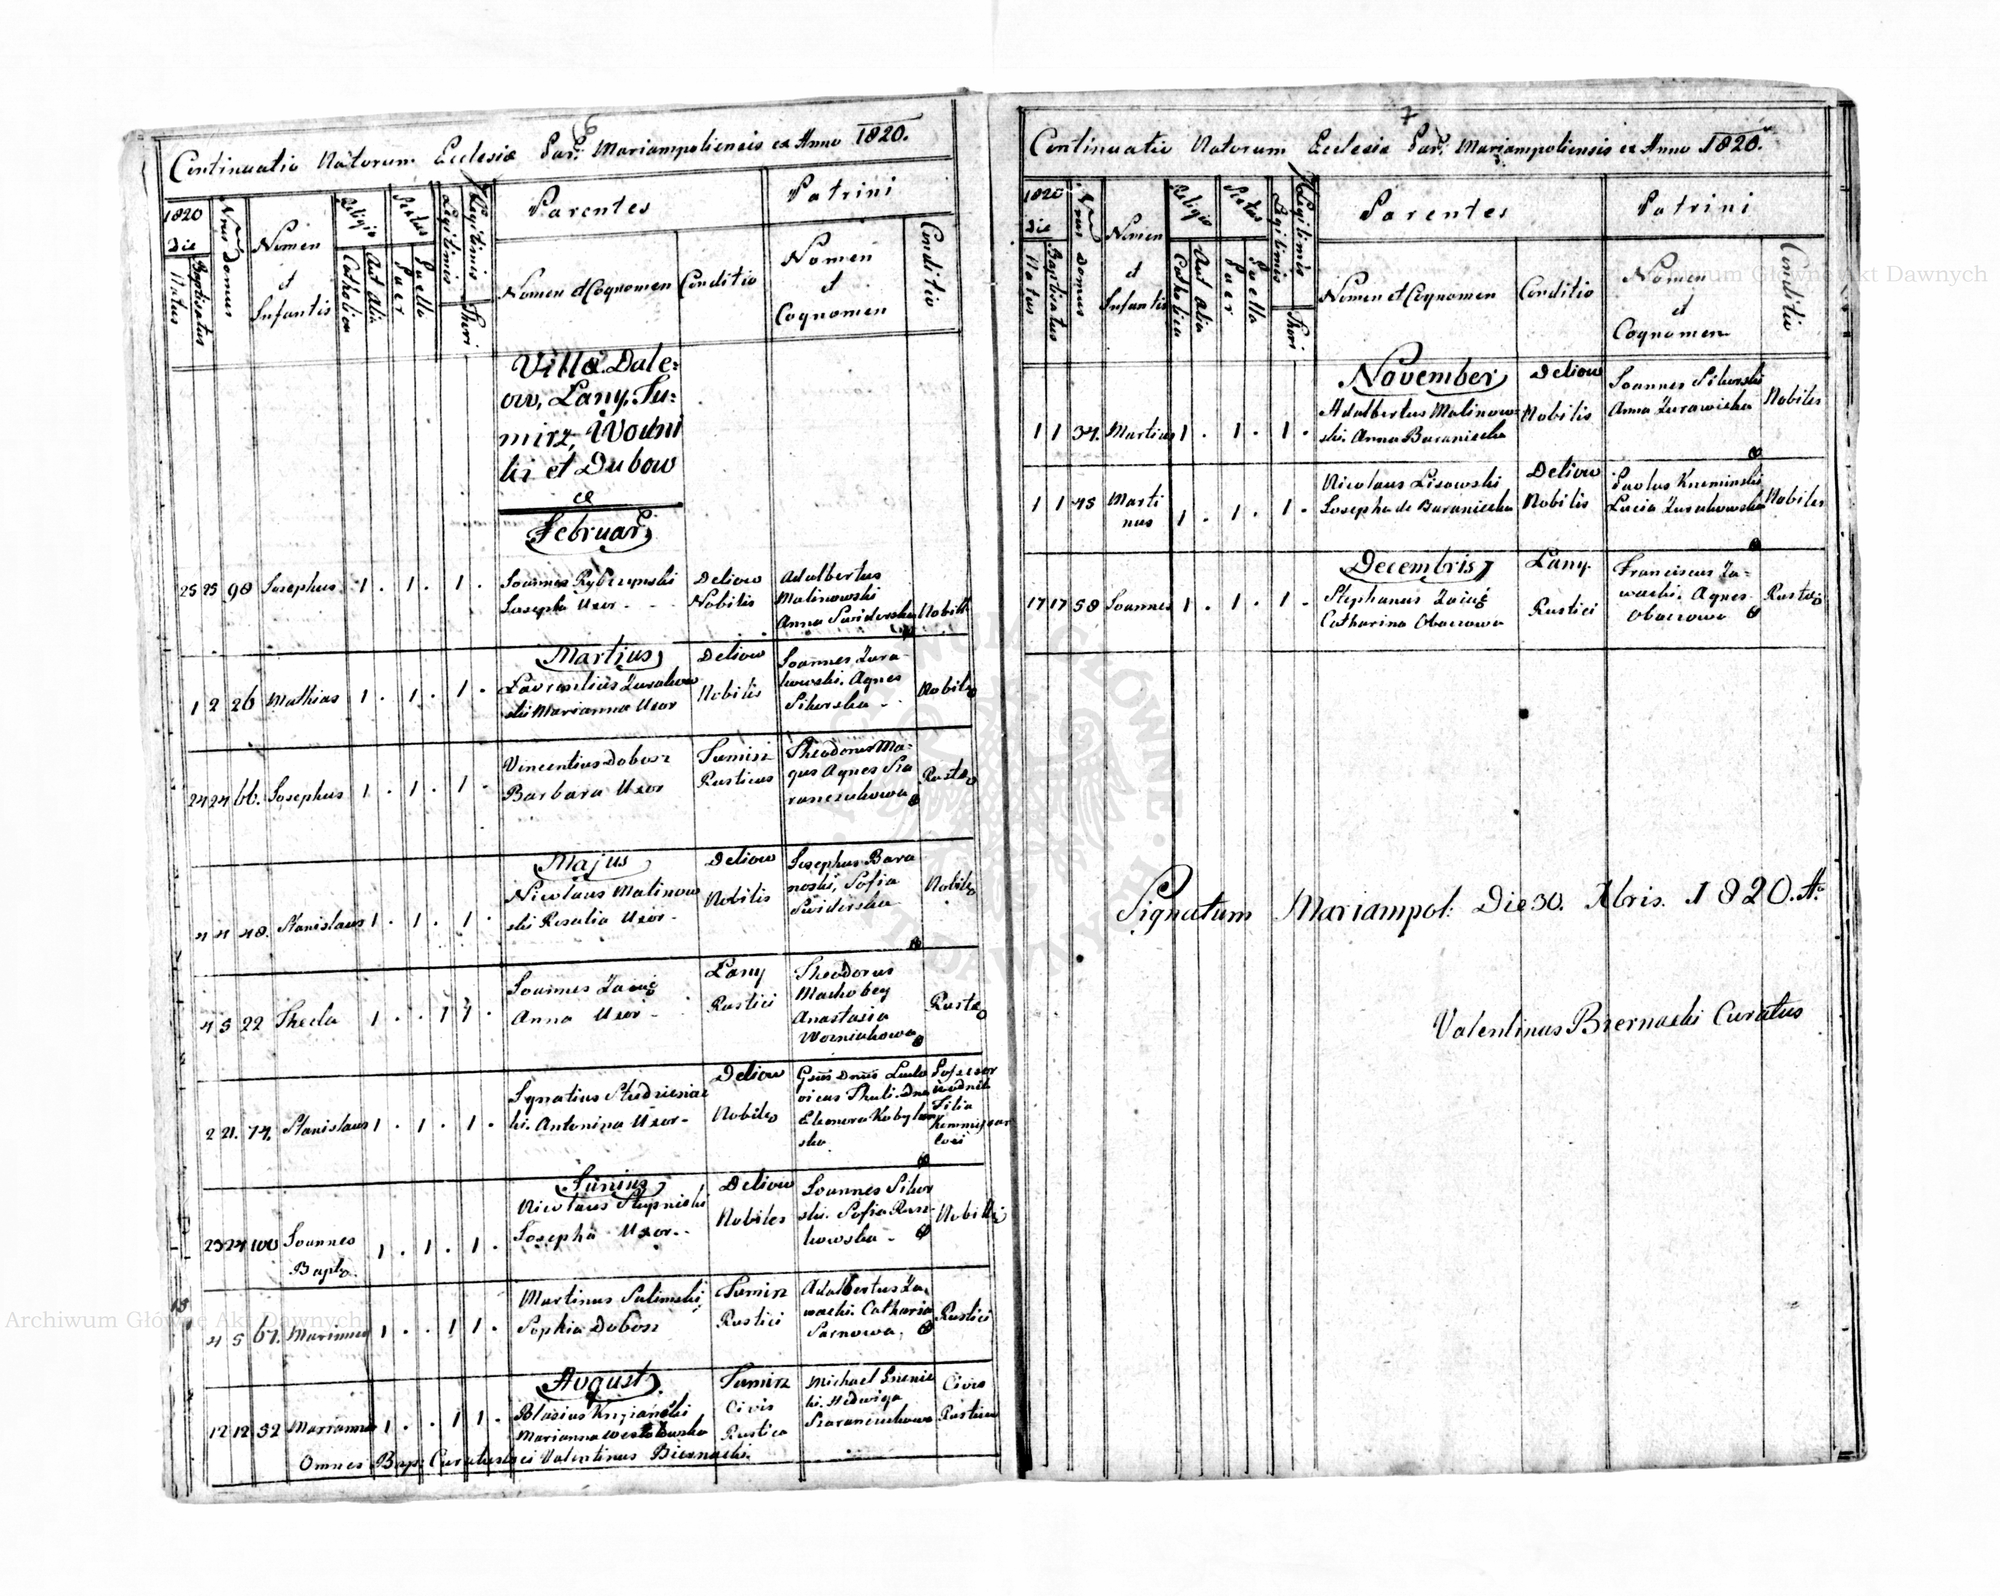 6
Continuatio Natorum Ecclesiæ Par: Mariampoliensis ex Anno 1820.
1820
Die
Natus
Baptisatus
Nrus Domus
Nomen
et
Infantis
Religio
Catholica
Aut Alia
Sexus
Puer
Puella
Legitimi
Illegitimi
Thori
Parentes
Nomen et Cognomen
Conditio
Patrini
Nomen
et
Cognomen
Conditio
Villa Dale-
ow, Lany, Tu-
mirz, Wodni
ki et Dubow
ce
Februar
25 25 98 Josephus 1 . 1 . 1 .
Joannes Rybczynski
Josepha Uxor - -
Deliow
Nobilis
Adalbertus
Malinowski
Anna Swiderska
Nobili
Martius
1 2 26 Mathias 1 . 1 . 1 .
Laurentius Zurakow
ski Marianna Uxor
Deliow
Nobilis
Joannes Zura-
kowski. Agnes
Sikorska -
Nobiles
24 24 66. Josephus 1 . 1 . 1 .
Vincentius Dobosz
Barbara Uxor
Tumirz
Rusticus
Theodorus Ma-
gus Agnes Sta
ranczukowa
Rustes
Majus
4 4 48. Stanislaus 1 . 1 . 1 .
Nicolaus Malinow
ski Rosalia Uxor -
Deliow
Nobilis
Josephus Bara
noski, Sofia
Swiderska
Nobiles
4 5 22 Thecla 1 . . 1 1 .
Joannes Zaiąc
Anna Uxor -
Lany
Rustici
Theodorus
Machobey
Anastasia
Wozniakowa
Rustes
2 21. 74. Stanislaus 1 . 1 . 1 .
Ignatius Studziensi
ki. Antonina Uxor -
Deliow
Nobiles
Gsus Dnus Ludo
vicus Thuli. Dna
Eleonora Kobylan
ska
Possessor
Wodnik
Filia
Kommissar
Loci
Junius
23 24 100 Joannes
Bapt. 1 . 1 . 1 .
Nicolaus Stupnicki
Josepha Uxor -
Deliow
Nobiles
Joannes Sikor
ski. Sofia Rusz-
kowska -
Nobilis
4 5 67. Marianna 1 . . 1 1 .
Martinus Sulimski
Sophia Dobosz
Tumirz
Rustici
Adalbertus Za
wacki. Catharia
Sacnowa,
Rustici
August
12 12 32 Marianna 1 . . 1 1 .
Blasius Krzyianoski
Marianna Westelowska
Tumirz
Civis
Rustica
Michael
ki. Hedwiga
Staranczukowa
Civis
Rustica
Omnes Bap: Curatus Loci Valentinus Biernacki.
7
Continuatio Natorum Ecclesiæ Par: Mariampoliensis ex Anno 1820.
1820
Die
Natus
Baptisatus
Nrus Domus
Nomen
et
Infantis
Religio
Catholica
Aut Alia
Sexus
Puer
Puella
Legitimi
Illegitimi
Thori
Parentes
Nomen et Cognomen
Conditio
Patrini
Nomen
et
Cognomen
Conditio
November
1 1 37. Martius 1 . 1 . 1 .
Adalbertus Malinow-
ski. Anna Baraniecka
Deliow
Nobilis
Joannes Sikorski
Anna Zurawicka
Nobiles
1 1 45 Marti
nus 1 . 1 . 1 .
Nicolaus Lisowski
Josepha de Baraniecka
Deliow
Nobilis
Paulus Krzeminski
Lucia Zurakowska
Nobiles
Decembris
17 17 58 Joannes 1 . 1 . 1 .
Stephanus Zaiąc
Catharina Obacrowa
Lany
Rustici
Franciscus Za-
wacki. Agnes
Obacrowa
Rustes
Signatum Mariampol: Die 30. Xbris. 1820. Ao
Valentinus Biernacki Curatus
Archiwum Główne Akt Dawnych
Archiwum Główne Akt Dawnych
ARCHIWUM GŁÓWNE AKT DAWNYCH